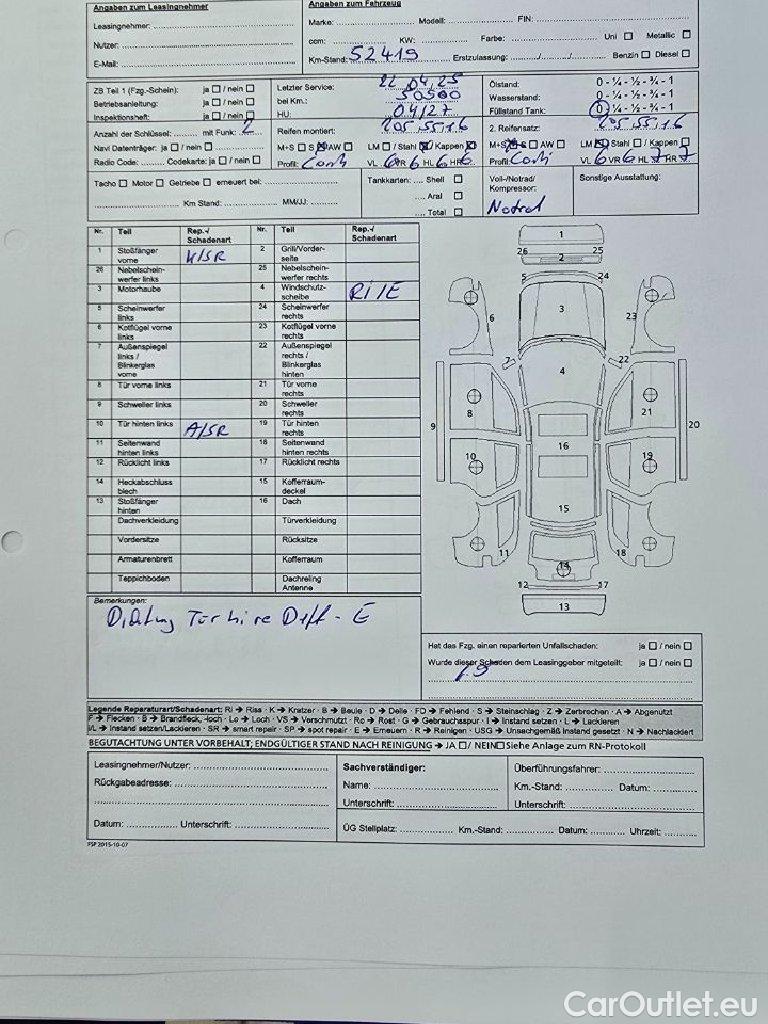 Angaben zum Leasingnehmer
Angaben zum Fahrzeug
Leasingnehmer:
Marke: Modell: FIN:
Nutzer:
ccm: KW: Farbe: Uni ☐ Metallic ☐
E-Mail:
Km-Stand: 52419 Erstzulassung: / / Benzin ☐ Diesel ☐
ZB Teil 1 (Fzg.-Schein): ja ☐ / nein ☐
Betriebsanleitung: ja ☐ / nein ☐
Inspektionsheft: ja ☐ / nein ☐
Letzter Service: 22.04.25
bei Km.: 50500
HU: 04/27
Ölstand: 0 - ¼ - ½ - ¾ - 1
Wasserstand: 0 - ¼ - ½ - ¾ - 1
Füllstand Tank: 0 - ¼ - ½ - ¾ - 1
Anzahl der Schlüssel: mit Funk: 2
Navi Datenträger: ja ☐ / nein ☐
Radio Code: Codekarte: ja ☐ / nein ☐
Reifen montiert: 205,55,16
M+S ☐ S ☒ AW ☐ LM ☐ / Stahl ☒ / Kappen ☒
Profil: Conti VL 6 VR 6 HL 6 HR 6
2. Reifensatz: 205,55,16
M+S ☒ S ☐ AW ☐ LM ☒ Stahl ☐ / Kappen ☐
Profil: Conti VL 6 VR 6 HL 7 HR 7
Tacho ☐ Motor ☐ Getriebe ☐ erneuert bei:
Km Stand: MM/JJ:
Tankkarten: .... Shell ☐
.... Aral ☐
.... Total ☐
Voll-/Notrad/
Kompressor:
Notrad
Sonstige Ausstattung:
Nr. Teil Rep.-/ Schadenart Nr. Teil Rep.-/ Schadenart
1 Stoßfänger vorne K/SR 2 Grill/Vorderseite
26 Nebelscheinwerfer links 25 Nebelscheinwerfer rechts
3 Motorhaube 4 Windschutzscheibe RI/E
5 Scheinwerfer links 24 Scheinwerfer rechts
6 Kotflügel vorne links 23 Kotflügel vorne rechts
7 Außenspiegel links / Blinkerglas vorne 22 Außenspiegel rechts / Blinkerglas hinten
8 Tür vorne links 21 Tür vorne rechts
9 Schweller links 20 Schweller rechts
10 Tür hinten links A/SR 19 Tür hinten rechts
11 Seitenwand hinten links 18 Seitenwand hinten rechts
12 Rücklicht links 17 Rücklicht rechts
14 Heckabschluss blech 15 Kofferraumdeckel
13 Stoßfänger hinten 16 Dach
Dachverkleidung Türverkleidung
Vordersitze Rücksitze
Armaturenbrett Kofferraum
Teppichboden Dachreling Antenne
1
26 25
2
5 24
3
6 23
7 22
4
8 21
9 20
16
10 19
15
11 18
14
12 17
13
Bemerkungen:
Dichtung Tür hi re Def - E
Hat das Fzg. einen reparierten Unfallschaden: ja ☐ / nein ☐
Wurde dieser Schaden dem Leasinggeber mitgeteilt: ja ☐ / nein ☐
Legende Reparaturart/Schadenart: RI → Riss · K → Kratzer · B → Beule · D → Delle · FD → Fehlend · S → Steinschlag · Z → Zerbrochen · A → Abgenutzt
F → Flecken · B → Brandfleck, -loch · Lo → Loch · VS → Verschmutzt · Ro → Rost · G → Gebrauchsspur · I → Instand setzen · L → Lackieren
I/L → Instand setzen/Lackieren · SR → smart repair · SP → spot repair · E → Erneuern · R → Reinigen · USG → Unsachgemäß Instand gesetzt · N → Nachlackiert
BEGUTACHTUNG UNTER VORBEHALT; ENDGÜLTIGER STAND NACH REINIGUNG → JA ☐ / NEIN ☐ Siehe Anlage zum RN-Protokoll
Leasingnehmer/Nutzer:
Rückgabeadresse:
Datum: Unterschrift:
Sachverständiger:
Name:
Unterschrift:
Überführungsfahrer:
Km.-Stand: Datum:
Unterschrift:
ÜG Stellplatz: Km.-Stand: Datum: Uhrzeit:
IFSP 2015-10-07
CarOutlet.eu